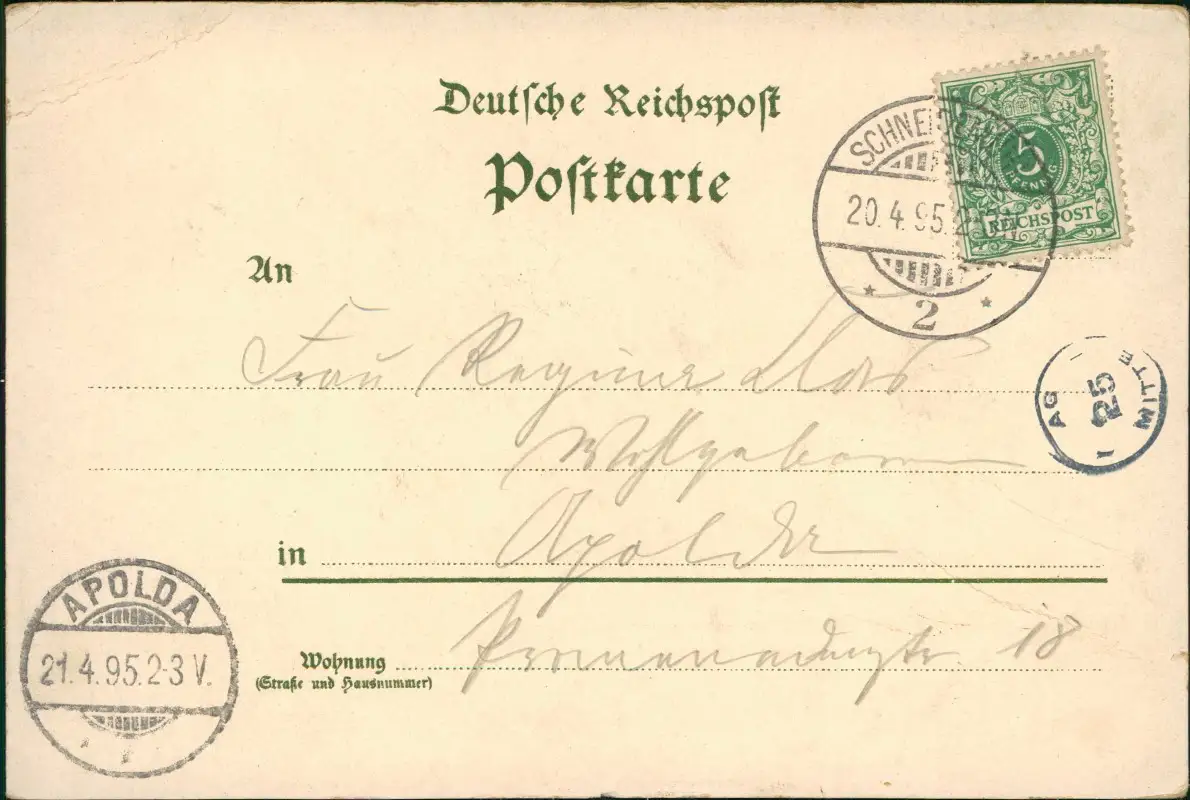 Deutsche Reichspost
Postkarte
SCHNE
20.4.95.2-
2
5
PFENNIG
REICHSPOST
An
Frau Regine
Wohlgeboren
in Apolda
Wohnung
(Straße und Hausnummer)
18
AG
25
MITTE
APOLDA
21.4.95.2-3 V.